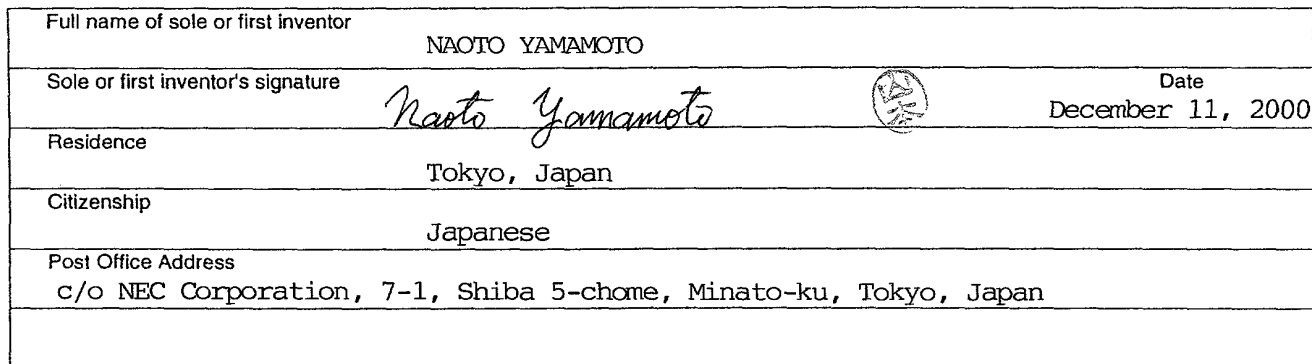 Full name of sole or first inventor
NAOTO YAMAMOTO
Sole or first inventor's signature
Naoto Yamamoto
Date
December 11, 2000
Residence
Tokyo, Japan
Citizenship
Japanese
Post Office Address
c/o NEC Corporation, 7-1, Shiba 5-chome, Minato-ku, Tokyo, Japan